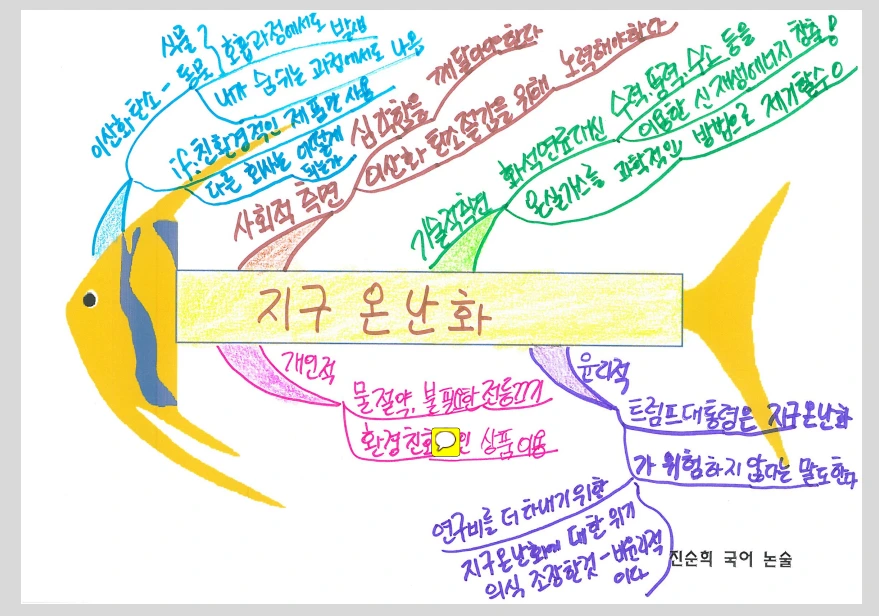 식물
이산화탄소 - 동물 } 호흡과정에서도 발생
내가 숨쉬는 과정에서도 나옴
if.친환경적인 제품만 사용
다른 회사는 어떻게
되는가
사회적 측면
심각함을 깨달아야한다
이산화 탄소절감을 위해 노력해야한다
기술적측면
화석연료대신 수력.풍력.수소 등을
이용한 신재생에너지 창출!
온실가스를 과학적인 방법으로 제거할수 O
지구 온난화
개인적
물절약, 불필요한 전등끄기
환경친화 인 상품 이용
윤리적
트럼프대통령은 지구온난화
가 위험하지 않다는 말도한다
연구비를 더 타내기위함
지구온난화에 대한 위기
의식 조장한것 - 비윤리적
이다
진순희 국어 논술